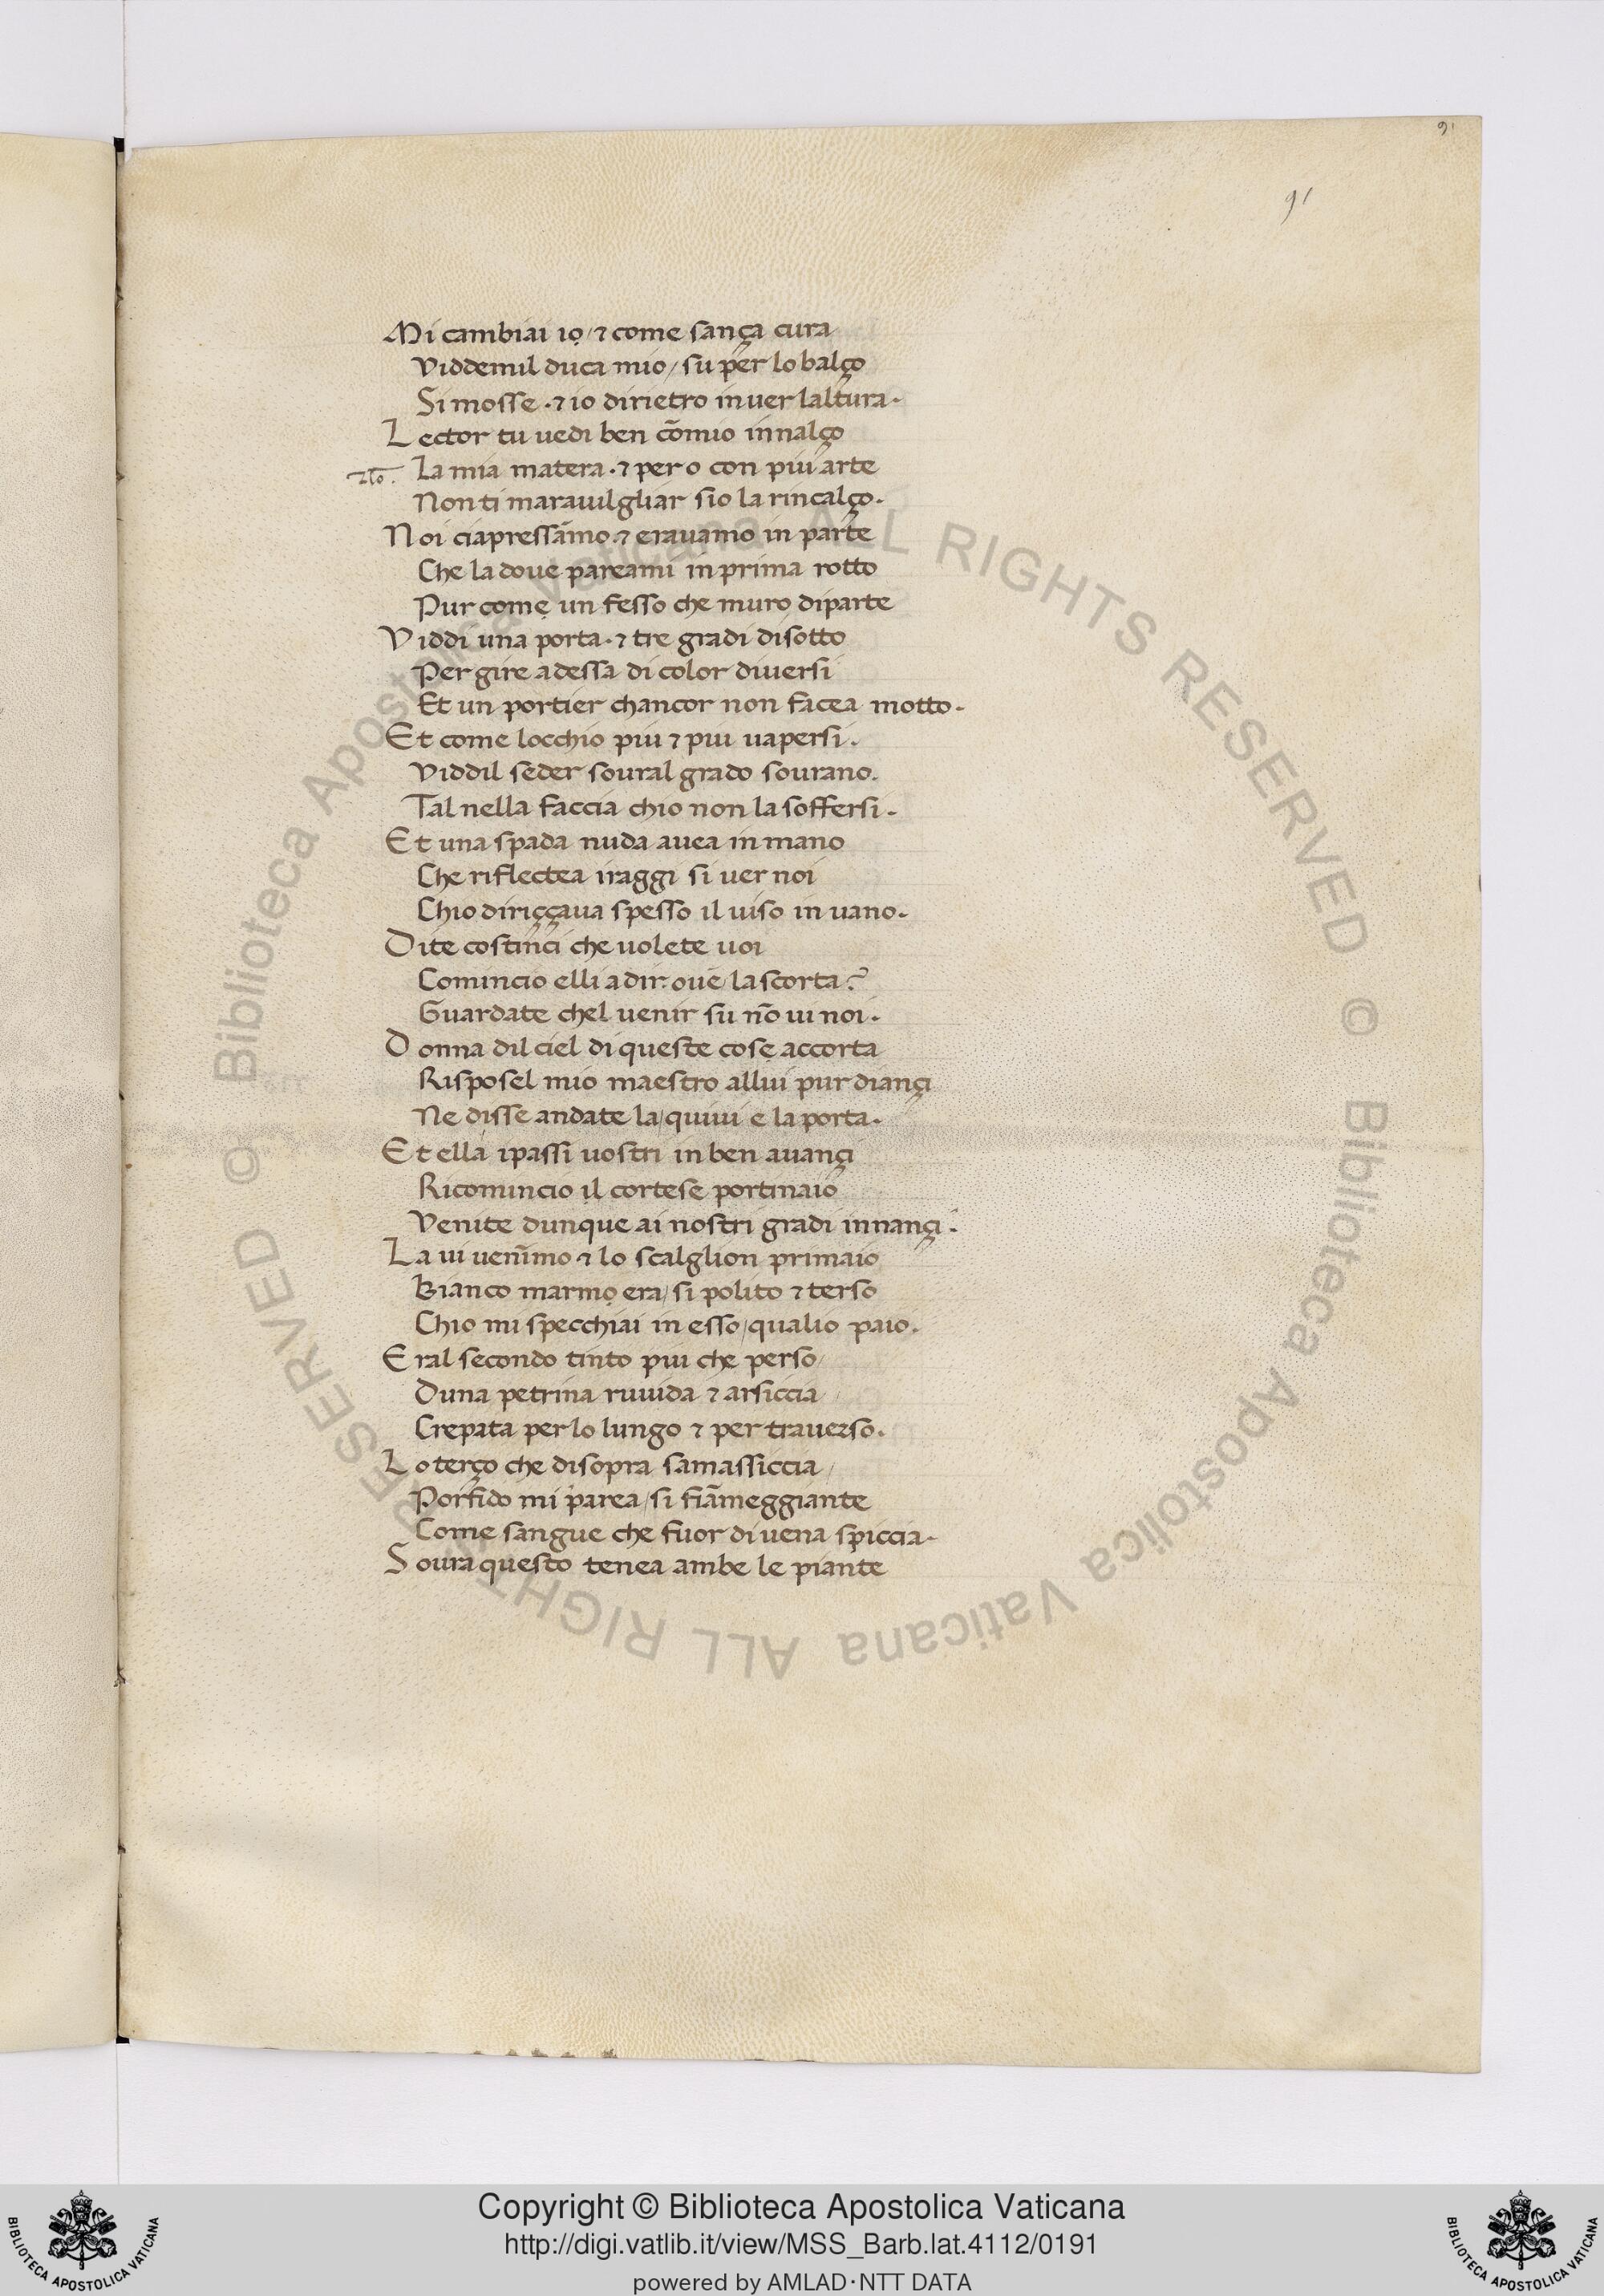 91
91
Mi cambiai io / ⁊ come sança cura
Viddemil duca mio / su per lo balço
Si mosse · ⁊ io dirietro inuer laltura ·
Lector tu uedi ben cōmio innalço
La mia matera · ⁊ pero con piu arte
Non ti marauilgliar sio la rincalço ·
Noi ciapressāmo · ⁊ erauamo in parte
Che la doue pareami in prima rotto
Pur come un fesso che muro diparte
Viddi una porta · ⁊ tre gradi disotto
Per gire adessa di color diuersi
Et un portier chancor non facea motto ·
Et come locchio piu ⁊ piu uapersi ·
Viddil seder soural grado sourano ·
Tal nella faccia chio non la soffersi ·
Et una spada nuda auea in mano
Che riflectea iraggi si uer noi
Chio diriççaua spesso il uiso in uano ·
Dite costinci che uolete uoi
Comincio elli a dir · oue / la scorta ?
Guardate chel uenir su nō ui noi ·
Donna dil ciel di queste cose accorta
Risposel mio maestro allui pur diançi
Ne disse andate la / quiui e la porta ·
Et ella ipassi uostri in ben auançi
Ricomincio il cortese portinaio
Venite dunque ai nostri gradi innançi ·
La ui venīmo ⁊ lo scalglion primaio
Bianco marmo era / si polito ⁊ terso
Chio mi specchiai in esso / qualio paio ·
Eral secondo tinto piu che perso /
Duna petrina ruuida ⁊ arsiccia /
Crepata per lo lungo ⁊ per trauerso ·
Lo terço che disopra samassiccia /
Porfido mi parea / si fiāmeggiante
Come sangue che fuor di uena spiccia ·
Soura questo tenea ambe le piante
© Biblioteca Apostolica Vaticana ALL RIGHTS RESERVED © Biblioteca Apostolica Vaticana ALL RIGHTS RESERVED
Copyright © Biblioteca Apostolica Vaticana
http://digi.vatlib.it/view/MSS_Barb.lat.4112/0191
powered by AMLAD·NTT DATA
BIBLIOTECA APOSTOLICA VATICANA
BIBLIOTECA APOSTOLICA VATICANA